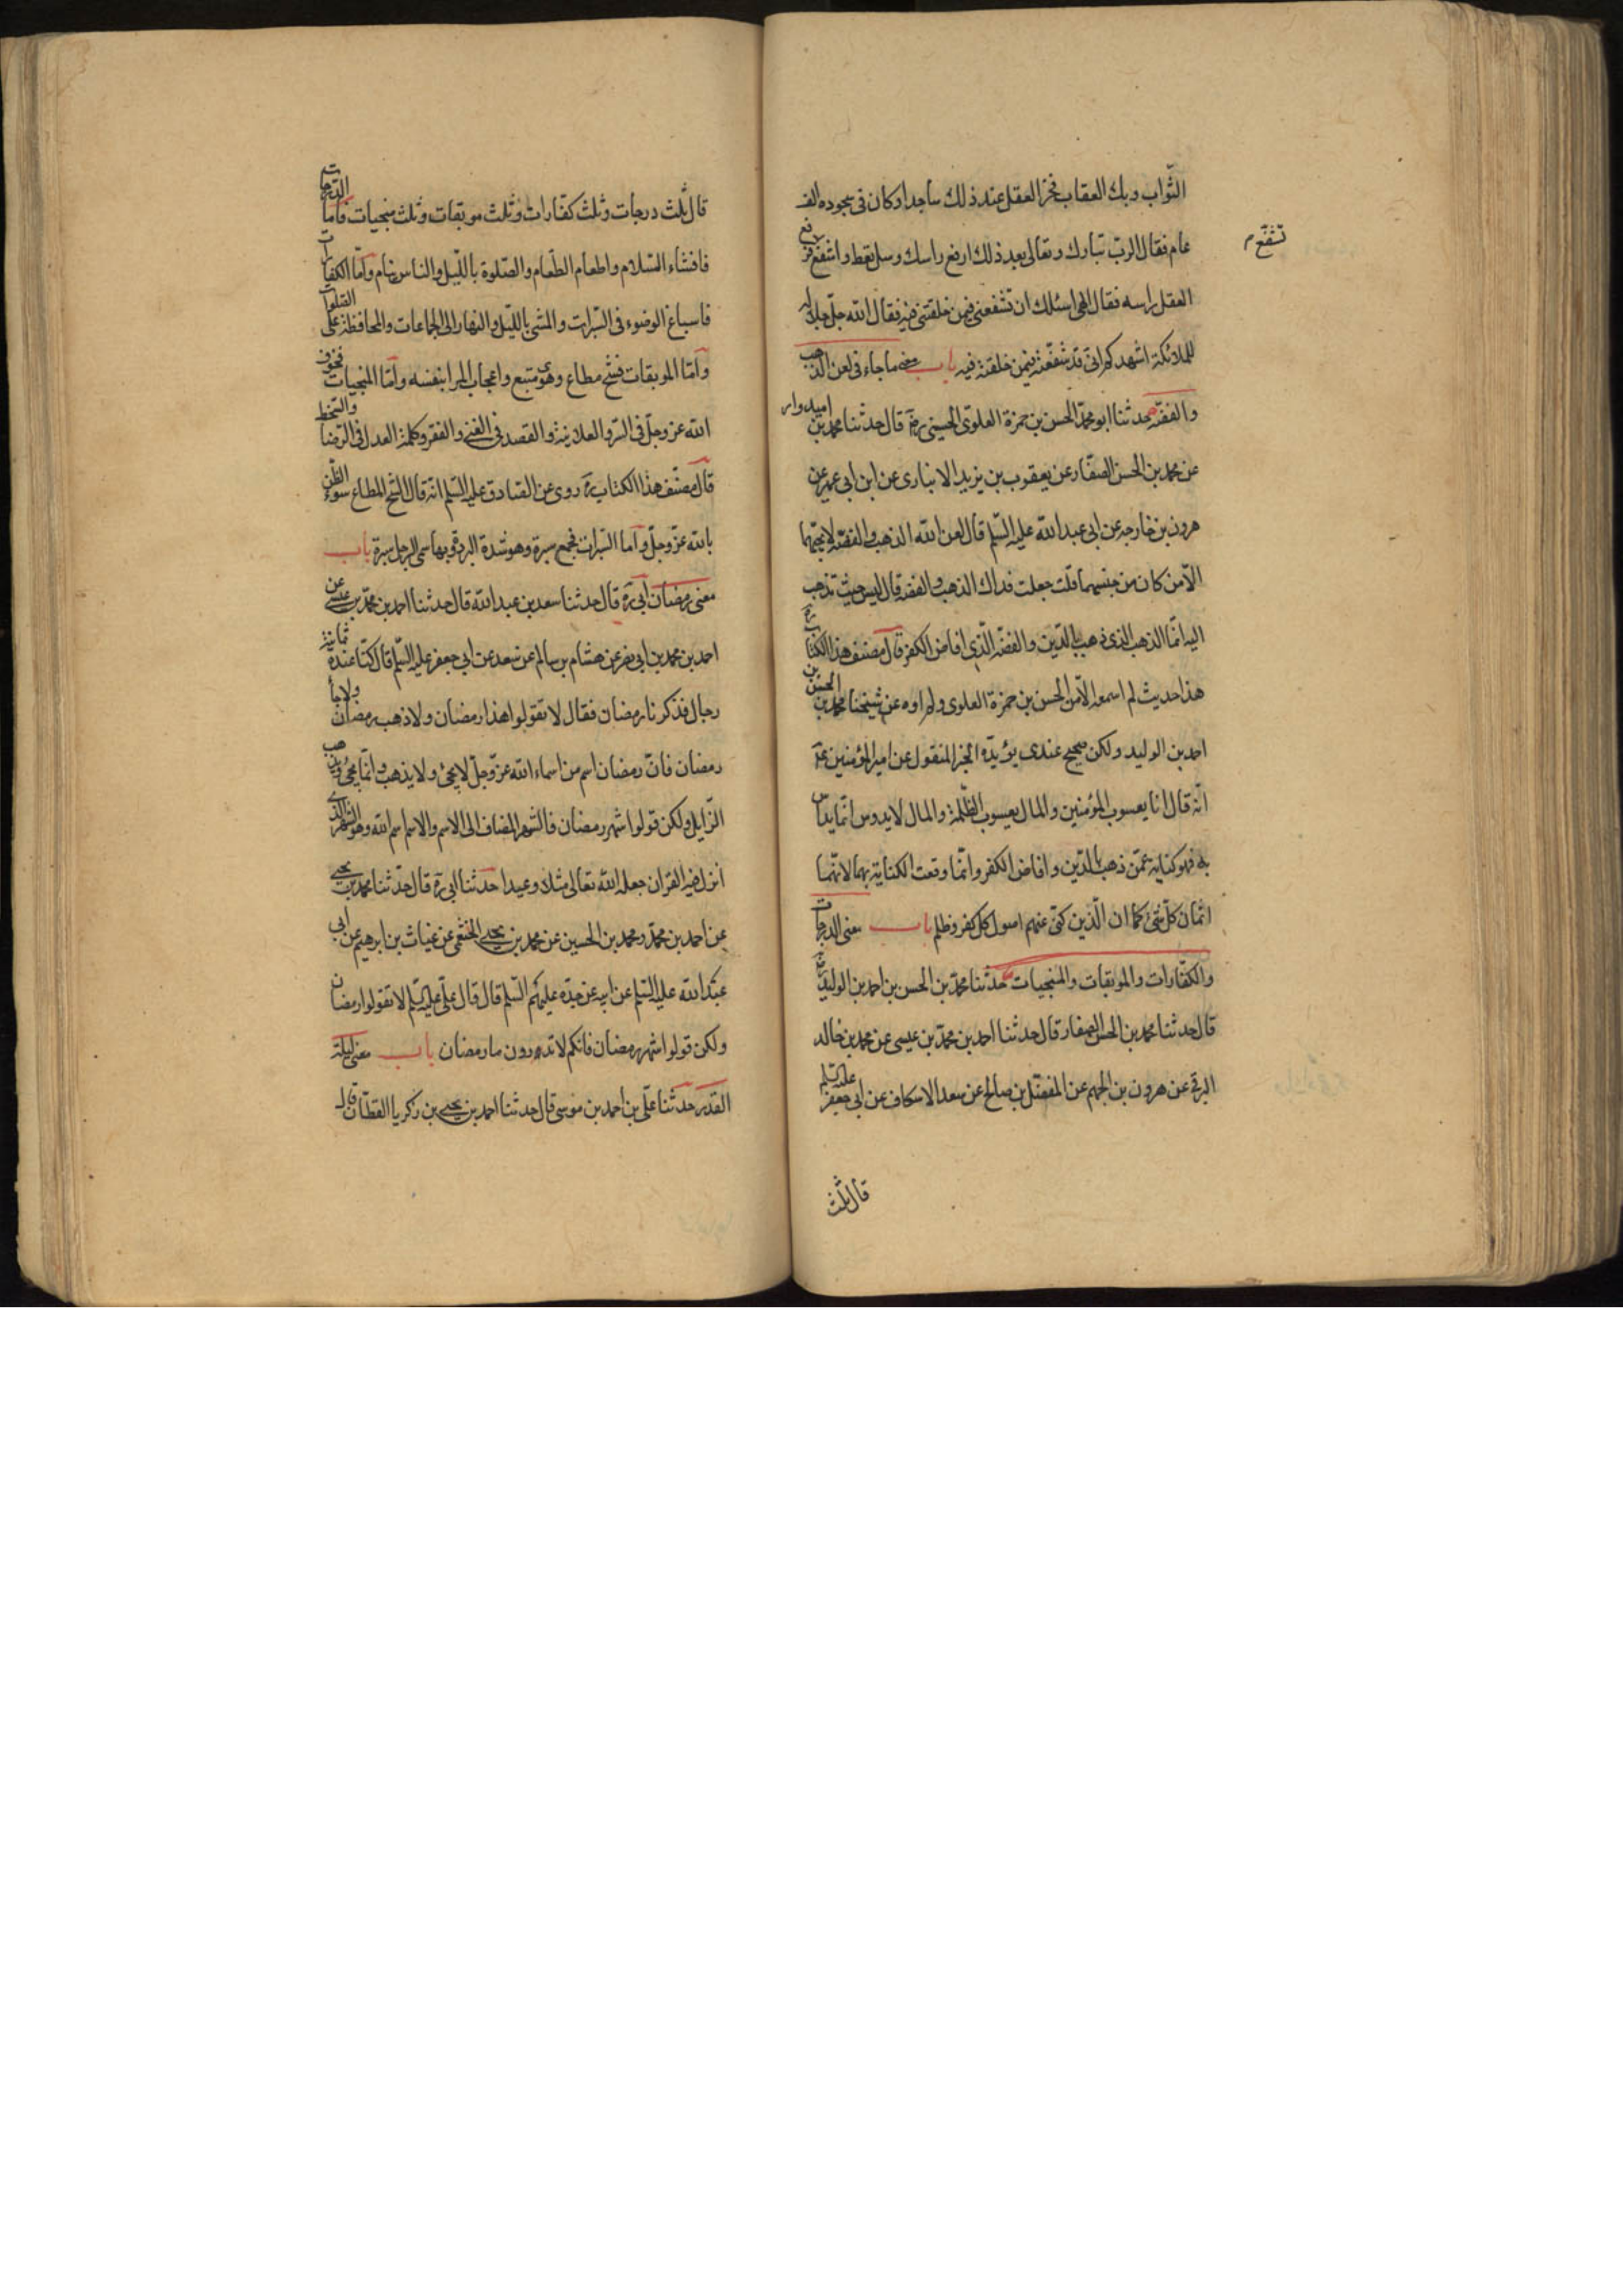 الثّواب وبك العقاب فخرّ العقل عند ذلك ساجدا وكان في سجوده الف
عام فقال الربّ تبارك وتعالى بعد ذلك ارفع راسك وسل تعط واشفع تشفّع فرفع
العقل راسه فقال الهى اسئلك ان تشفعنى فيمن خلقتنى فيه فقال الله جلّ جلاله
للملائكة اشهدكم انى قد شفّعته فيمن خلقته فيه باب معنى ما جاء فى لعن الذهب
والفضّة حدثنا ابو محمّد الحسن بن حمزة العلوىّ الحسينى ره قال حدثنا محمد بن اميدوار
عن محمد بن الحسن الصفّار عن يعقوب بن يزيد الانبارى عن ابن ابى عمير عن
هرون بن خارجه عن ابى عبد الله عليه السّلم قال لعن الله الذهب والفضّة لا يحبّهما
الّا من كان من جنسهما قلت جعلت فداك الذهب والفضة قال ليس حيث تذهب
اليه انّما الذهب الذى ذهب بالدّين والفضّه الّذى افاض الكفر قال مصنف هذا الكتاب ره
هذا حديث لم اسمعه الّا من الحسن بن حمزة العلوى ولم اروه عن شيخنا محمد بن الحسن بن
احمد بن الوليد ولكن صحيح عندى يؤيدّه الخبر المنقول عن امير المؤمنين عم
انّه قال انا يعسوب المؤمنين والمال يعسوب الظّلمة والمال لا يدوس انّما يداس
به فهو كنايه عمّن ذهب بالدّين وافاض الكفر وانّما وقعت الكناية بهما لانّهما
اثمان كلّ شئ كما ان الّذين كنّى عنهم اصول كل كفر وظلم باب معنى الدرجات
والكفّارات والموبقات والمنجيات حدثنا محمّد بن الحسن بن احمد بن الوليد ره
قال حدثنا محمد بن الحسن الصفار قال حدثنا احمد بن محمّد بن عيسى عن محمد بن خالد
البرقى عن هرون بن الجهم عن المفضّل بن صالح عن سعد الاسكاف عن ابى جعفر عليه السلم
قال ثلث
تشفّع م
قال ثلث درجات وثلث كفّارات وثلث موبقات وثلث منجيات فامّا الدّرجات
فافشاء السّلام واطعام الطّعام والصّلوة باللّيل والناس نيام وامّا الكفّارات
فاسباغ الوضوء فى السّبرات والمشى باللّيل والنهار الى الجماعات والمحافظة على الصّلوات
وامّا الموبقات فشحّ مطاع وهوى متبع واعجاب المرا بنفسه وامّا المنجيات فخوف
الله عزّ وجلّ فى السّر والعلانية والقصد فى الغنى والفقر وكلمة العدل فى الرّضا والسّخط
قال مصنّف هذا الكتاب ره روى عن الصّادق عليه السّلم انّه قال الشّح المطاع سوء الظّن
بالله عزّ وجلّ وامّا السّبرات فجمع سبرة وهو شدة البرد وبها سمى الرجل سبرة باب
معنى رمضان ابى ره قال حدثنا سعد بن عبد الله قال حدثنا احمد بن محمّد بن عيسى عن
احمد بن محمد بن ابى نصر عن هشام بن سالم عن سعد عن ابى جعفر عليه السّلم قال كنّا عنده ثمانية
رجال فذكرنا رمضان فقال لا تقولوا هذا رمضان ولا ذهب رمضان ولا جاء
رمضان فانّ رمضان اسم من اسماء الله عزّ وجلّ لا يجئ ولا يذهب وانّما يجئ ويذهب
الزّايل ولكن قولوا شهر رمضان فالشهر المضاف الى الاسم والاسم اسم الله وهو الشهر الذى
انزل فيه القران جعله الله تعالى مثلا وعيدا حدثنا ابى ره قال حدّثنا محمد بن يحيى
عن احمد بن محمّد ومحمد بن الحسين عن محمد بن يحيى الخثعمى عن غياث بن ابرهيم عن ابى
عبد الله عليه السّلم عن ابيه عن جدّه عليهم السّلم قال قال علىّ عليه السّلم لا تقولوا رمضان
ولكن قولوا شهر رمضان فانكم لا تدرون ما رمضان باب معنى ليلة
القدر حدثنا علىّ بن احمد بن موسى قال حدثنا احمد بن يحيى بن زكريا القطّان قال